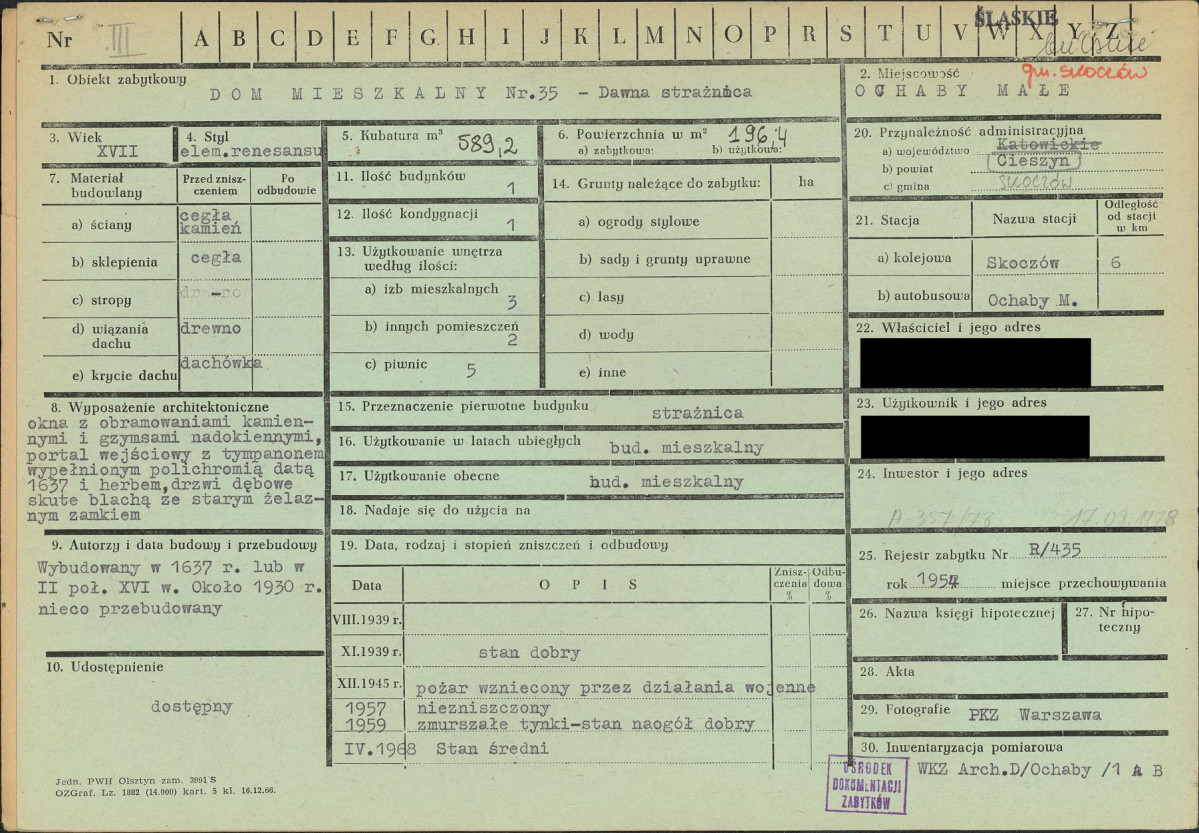 Nr III A B C D E F G H I J K L M N O P R S T U V W X Y Z
ŚLĄSKIE
gm. SKOCZÓW
1. Obiekt zabytkowy
DOM MIESZKALNY Nr.35 - Dawna strażnica
2. Miejscowość
OCHABY MAŁE
3. Wiek
XVII
4. Styl
elem.renesansu
5. Kubatura m³ 589,2
6. Powierzchnia w m² 196,4
a) zabytkowa: b) użytkowa:
20. Przynależność administracyjna
a) województwo Katowickie
b) powiat Cieszyn
c) gmina SKOCZÓW
7. Materiał budowlany
Przed zniszczeniem
Po odbudowie
a) ściany cegła kamień
b) sklepienia cegła
c) stropy drewno -
d) wiązania dachu drewno
e) krycie dachu dachówka
11. Ilość budynków 1
12. Ilość kondygnacji 1
13. Użytkowanie wnętrza
według ilości:
a) izb mieszkalnych 3
b) innych pomieszczeń 2
c) piwnic 5
14. Grunty należące do zabytku: ha
a) ogrody stylowe
b) sady i grunty uprawne
c) lasy
d) wody
e) inne
21. Stacja Nazwa stacji Odległość od stacji w km
a) kolejowa Skoczów 6
b) autobusowa Ochaby M.
22. Właściciel i jego adres
23. Użytkownik i jego adres
24. Inwestor i jego adres
A-357/78 17.09.1978
8. Wyposażenie architektoniczne
okna z obramowaniami kamien-
nymi i gzymsami nadokiennymi,
portal wejściowy z tympanonem
wypełnionym polichromią datą
1637 i herbem,drzwi dębowe
skute blachą ze starym żelaz-
nym zamkiem
15. Przeznaczenie pierwotne budynku strażnica
16. Użytkowanie w latach ubiegłych bud. mieszkalny
17. Użytkowanie obecne bud. mieszkalny
18. Nadaje się do użycia na
9. Autorzy i data budowy i przebudowy
Wybudowany w 1637 r. lub w
II poł. XVI w. Około 1930 r.
nieco przebudowany
10. Udostępnienie
dostępny
19. Data, rodzaj i stopień zniszczeń i odbudowy
Data OPIS Zniszczenia % Odbudowa %
VIII.1939 r.
XI.1939 r. stan dobry
XII.1945 r. pożar wzniecony przez działania wojenne
1957 niezniszczony
1959 zmurszałe tynki-stan naogół dobry
IV.1968 Stan średni
25. Rejestr zabytku Nr R/435
rok 1957 miejsce przechowywania
26. Nazwa księgi hipotecznej
27. Nr hipo-
teczny
28. Akta
29. Fotografie PKZ Warszawa
30. Inwentaryzacja pomiarowa
WKZ Arch.D/Ochaby /1 A B
OŚRODEK
DOKUMENTACJI
ZABYTKÓW
Jedn. PWH Olsztyn zam. 3991 S
OZGraf. Lz. 1882 (14.000) kart. 5 kl. 16.12.66.